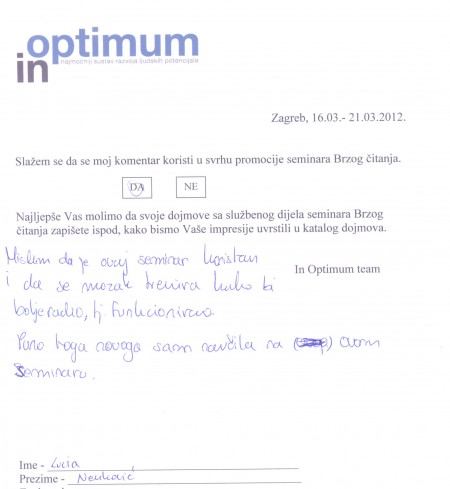 in optimum
najmoćniji sustav razvoja ljudskih potencijala
Zagreb, 16.03.- 21.03.2012.
Slažem se da se moj komentar koristi u svrhu promocije seminara Brzog čitanja.
DA NE
Najljepše Vas molimo da svoje dojmove sa službenog dijela seminara Brzog
čitanja zapišete ispod, kako bismo Vaše impresije uvrstili u katalog dojmova.
Mislim da je ovaj seminar koristan
i da se mozak trenira kako bi
In Optimum team
bolje radio, tj. funkcionirao.
Puno toga novoga sam naučila na ovom
seminaru.
Ime - Lucia
Prezime -